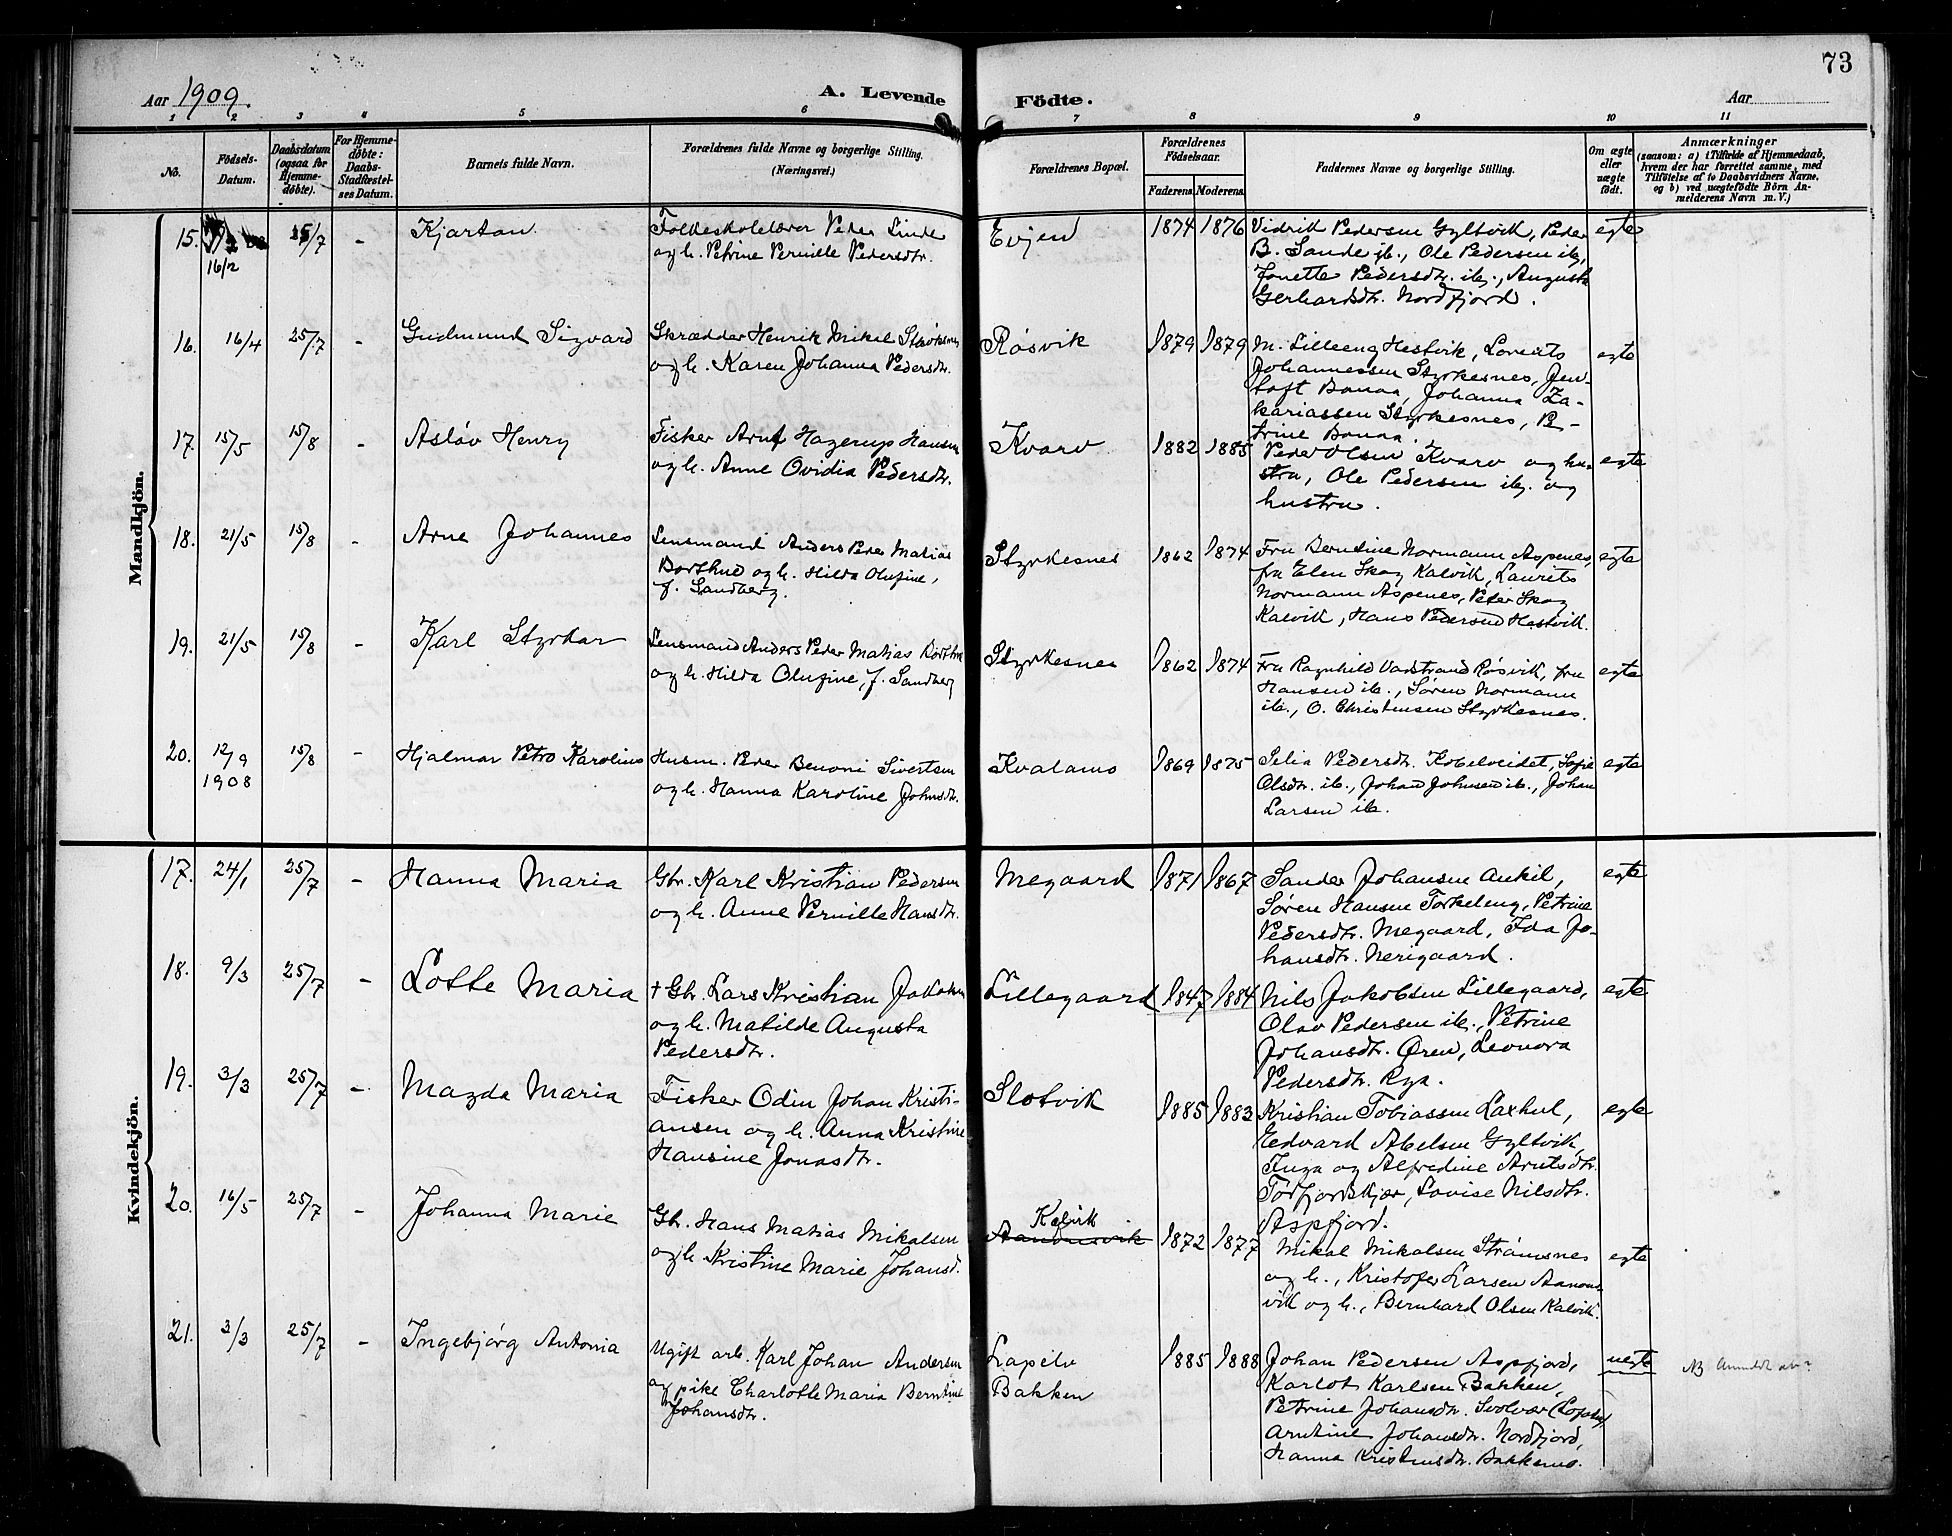 73
Aar 1909.
A. Levende Födte.
Aar
1 2 3 4 5 6 7 8 9 10 11
No.
Födsels-Datum.
Daabsdatum (ogsaa for Hjemme-döbte).
For Hjemme-döbte: Daabs-Stadfæstel-ses Datum.
Barnets fulde Navn.
Forældrenes fulde Navne og borgerlige Stilling. (Næringsvei.)
Forældrenes Bopæl.
Forældrenes Födselsaar.
Faderens. Moderens.
Faddernes Navne og borgerlige Stilling.
Om ægte eller uægte födt.
Anmærkninger
(saasom: a) i Tilfælde af Hjemmedaab,
hvem der har forrettet samme, med
Tilföielse af to Daabsvidners Navne,
og b) ved uægtefödte Börn An-
melderens Navn m. V.)
Mandkjön.
15. 16/2 25/7 - Kjartan
Folkeskolelærer Peder Sande
og h. Petrine Pernille Pedersdtr.
Evjen 1874 1876
Vidrik Pedersen Gyltvik, Peder
B. Sande ib., Ole Pedersen ib,
Jonette Pedersdtr. ib., Augusta
Gerhardsdtr. Nordfjord.
egte
16. 16/4 25/7 - Gudmund Sigvard
Skrædder Henrik Mikal
og h. Karen Johanna Pedersdtr.
Røsvik 1879 1879
M. Lilleeng Hestvik, Lorents
Johannessen Styrkesnes, Jen-
toft Bonaa, Johanna Za-
kariassen Styrkesnes, Pe-
trine Bonaa.
egte
17. 15/5 15/8 - Asløv Henry
Fisker Arnt Hagerup Hansen
og h. Anne Ovidia Pedersdtr.
Kvarv 1882 1885
Peder Olsen Kvarv og hu-
stru, Ole Pedersen ib. og
hustru.
egte
18. 21/5 15/8 - Arne Johannes
Lensmand Anders Peder Matias
Borthne og h. Hilda Olufine,
f. Sandberg.
Styrkesnes 1862 1874
Fru Berntine Normann Aspenes,
fru Elen Skog Kalvik, Laurits
Normann Aspenes, Peter Skog
Kalvik, Hans Pedersen Hestvik.
egte
19. 21/5 15/8 - Karl Styrkar
Lensmand Anders Peder Matias Borthne
og h. Hilda Olufine, f. Sandberg
Styrkesnes 1862 1874
Fru Ragnhild Vadstrand Røsvik, fru
Hansen ib., Søren Normann
ib., O. Christensen Styrkesnes.
egte
20. 12/9 1908 15/8 - Hjalmar Petro Karolius
Husm. Peder Benoni Sivertsen
og h. Hanna Karoline Johnsdtr.
Kvalamo 1869 1875
Selia Pedersdtr. Kobelveidet, Sofie
Olsdtr. ib., Johan Johnsen ib., Johan
Larsen ib.
egte
Kvindekjön.
17. 24/1 25/7 - Hanna Maria
Gbr. Karl Kristian Pedersen
og h. Anne Pernille Hansdtr.
Megaard 1871 1867
Sander Johansen Ankil,
Søren Hansen Torkeleng, Petrine
Pedersdtr. Megaard, Ida Jo-
hansdtr. Nerigaard.
egte
18. 9/3 25/7 - Lotte Maria
† Gbr. Lars Kristian Jakobsen
og h. Matilde Augusta
Pedersdtr.
Lillegaard 1847 1884
Nils Jakobsen Lillegaard,
Olav Pedersen ib., Petrine
Johansdtr. Øren, Leonora
Pedersdtr. Rya.
egte
19. 3/3 25/7 - Magda Maria
Fisker Odin Johan Kristi-
ansen og h. Anna Kristine
Hansine Jonasdtr.
Slotvik 1885 1883
Kristian Tobiassen Laxhul,
Edvard Abelsen Gyltvik,
Inga og Alfredine Arntsdtr.
Tørfjordskjær, Lovise Nilsdtr.
Aspfjord.
egte
20. 16/5 25/7 - Johanna Marie
Gbr. Hans Matias Mikalsen
og h. Kristine Marie Johansd.
Kalvik
1872 1877
Mikal Mikalsen Strømsnes
og h., Kristofer Larsen Aanons-
vik og h., Bernhard Olsen Kalvik.
egte
21. 3/3 25/7 - Ingebjørg Antonia
Ugift arb. Karl Johan Andersen
og pike Charlotte Maria Berntine
Johansdtr.
Lapelv
Bakken
1885 1888
Johan Pedersen Aspfjord,
Karlot Karlsen Bakken,
Petrine Johansdtr. Svolvær
Arntine Johansdtr. Nordfjord,
Hanna Kristensdtr. Bakkemo.
uegte
NB